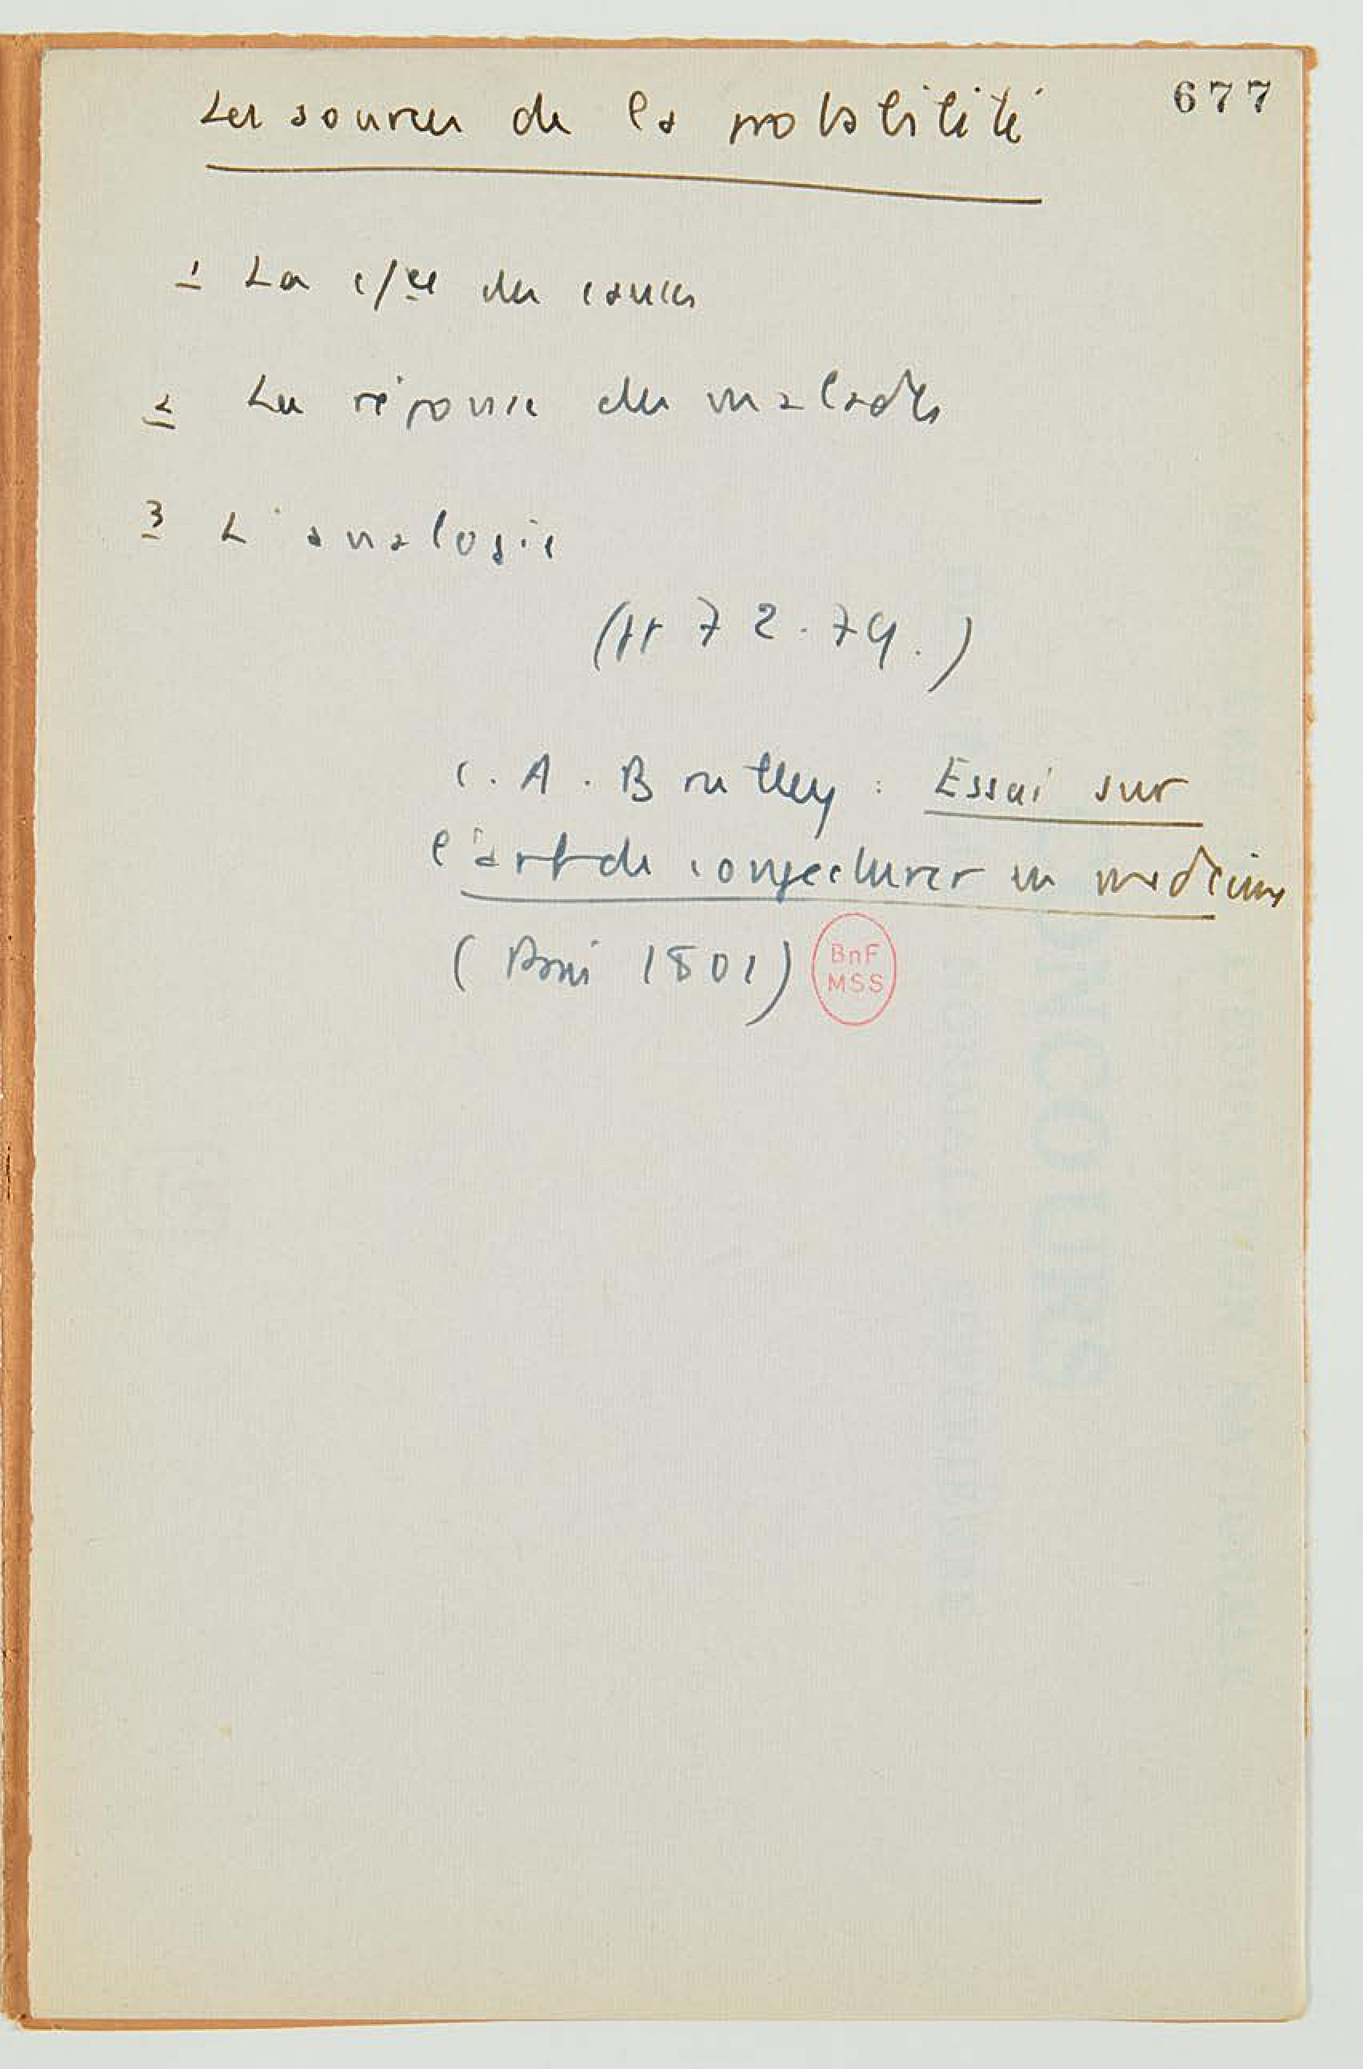 677
Les sources de la probabilité
1 La c/ce des causes
2 La réponse des malades
3 L'analogie
(pp 72-74.)
C. A. Brulley : Essai sur
l'art de conjecturer en medecine
(Paris 1801)
BnF
MSS
CONCOURS